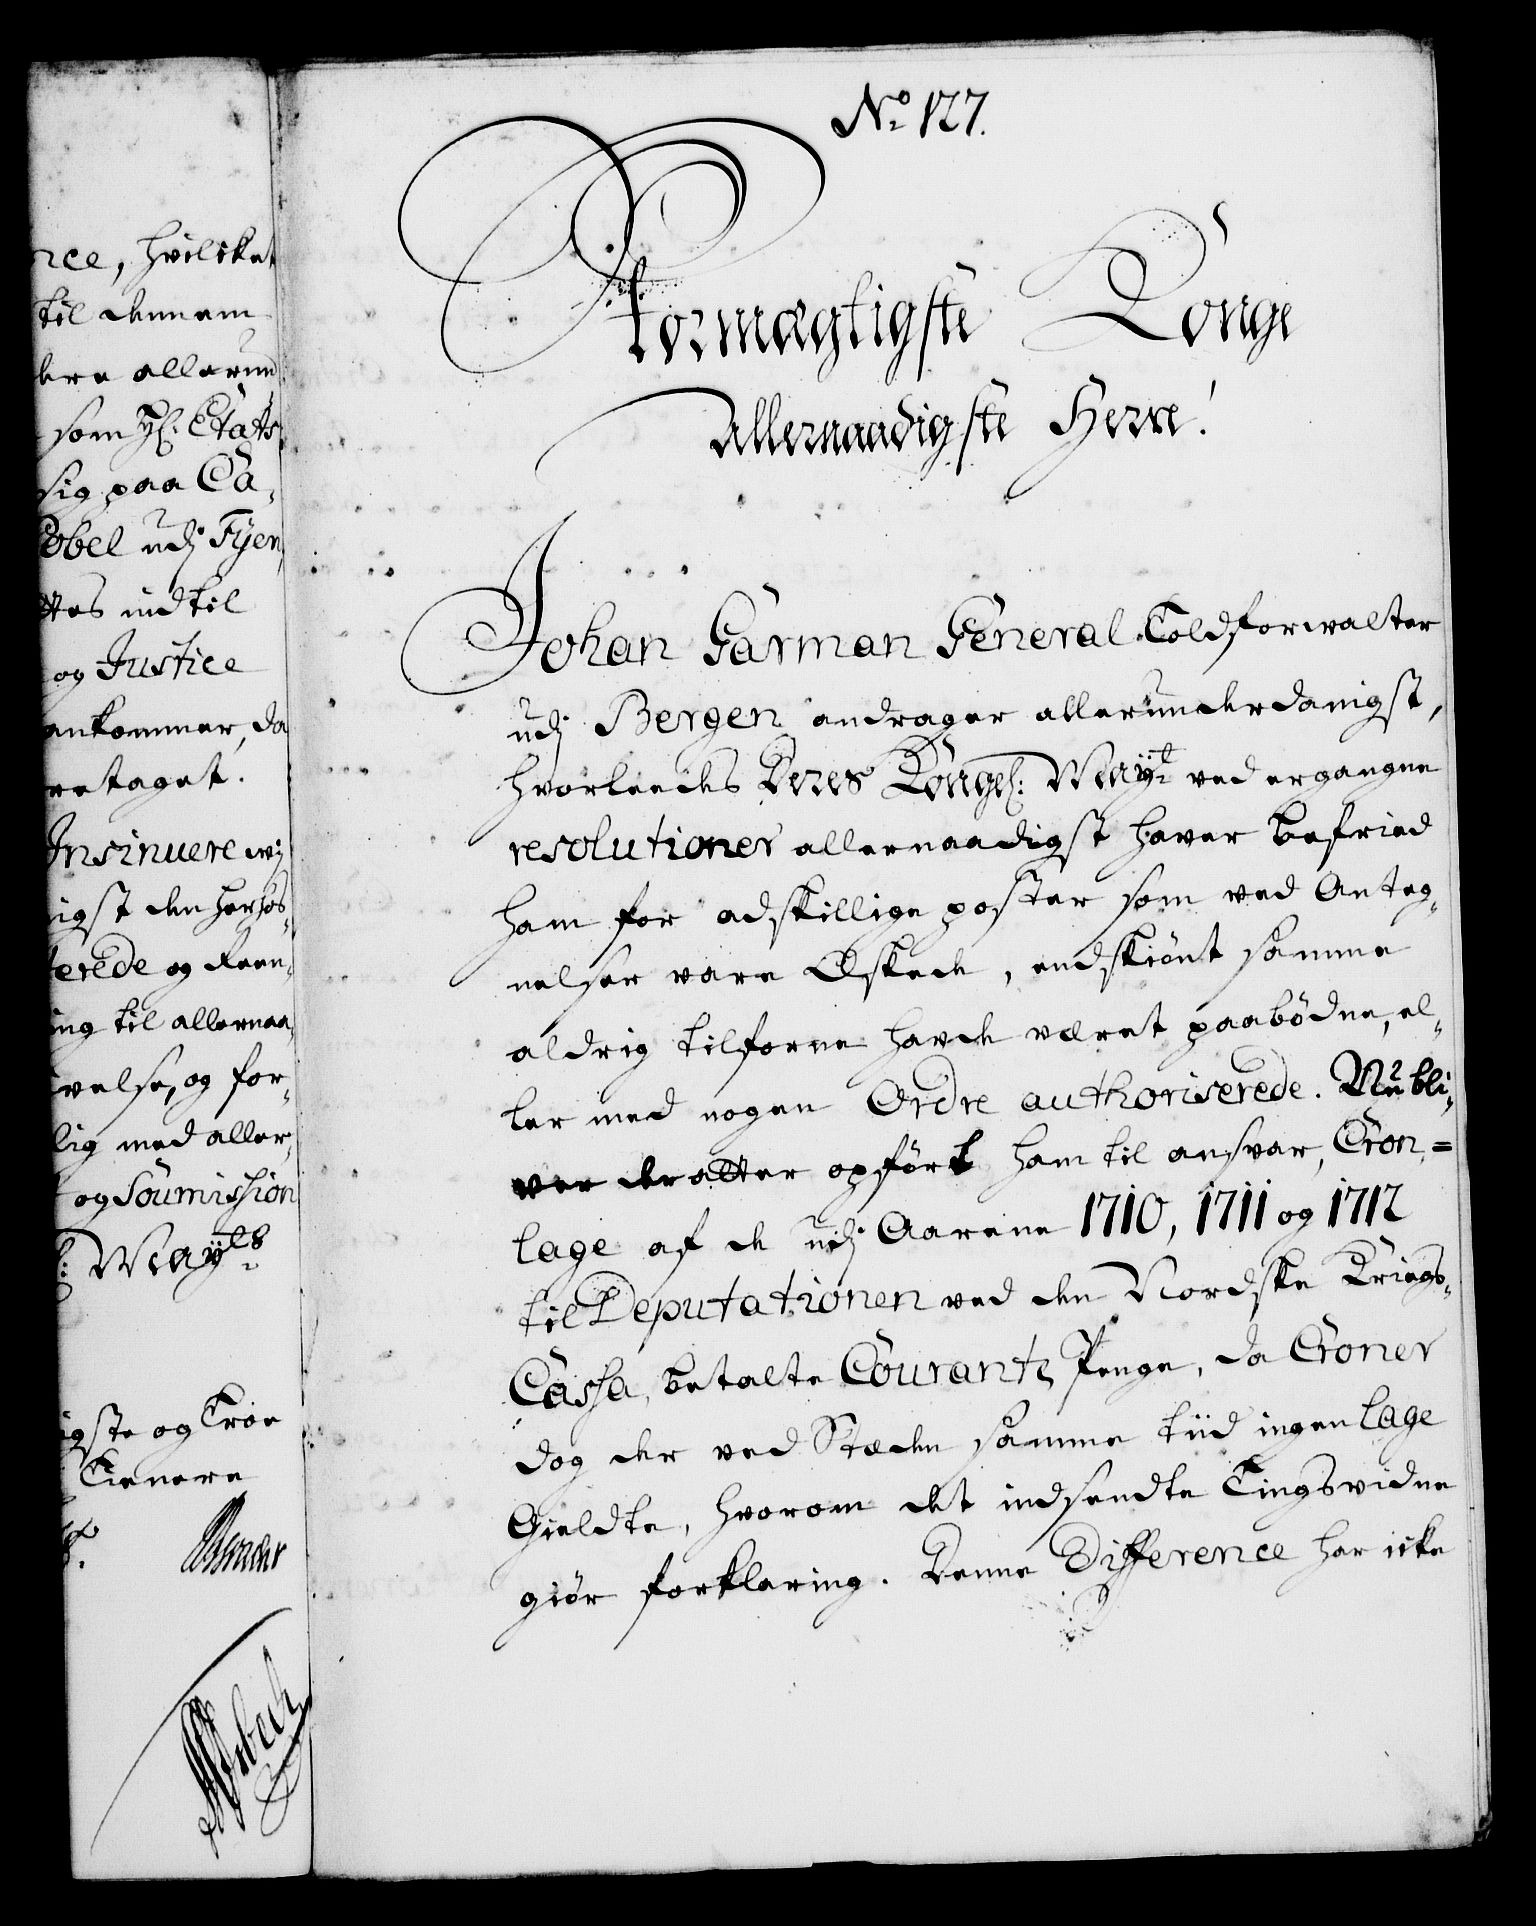 nce, hvilcket
til dennem
dere allerund
som Hf: Etats
sig paa Ca,
obel udj Fyen,
ttes indtil
og Justice
ankommer, da
retaget.
Insinuere wj
igst den herhos,
terede og Reen,
ing til allernaa,
velse, og for,
lig med aller,
og Soumission
: Mayts
igste og Troe
Tienere
No 127.
Stormægtigste Konge
Allernaadigste Herre!
Johan Garman General Toldforwalter
udj Bergen andrager allerunderdanigst,
hvorleedes Deres Kongel: Mayt ved ergangne
resolutioner allernaadigst haver befried
ham for adskillige poster som ved Anteg,
nelser vare Æskede, endskiönt samme
aldrig tilforne hafde været paabödne, el,
ler med nogen Ordre authoriserede. Nu bli,
ver der atter opfört ham til ansvar, Cron,=
lage af de udj Aarene 1710, 1711 og 1712
til Deputationen ved den Nordske Kriegs,
Cassa, betalte Courantz Penge, da Croner
dog der ved Stæden samme tiid ingen lage
Gieldte, hvorom det indsendte Tingsvidne
giör forklaring. Denne Difference har icke